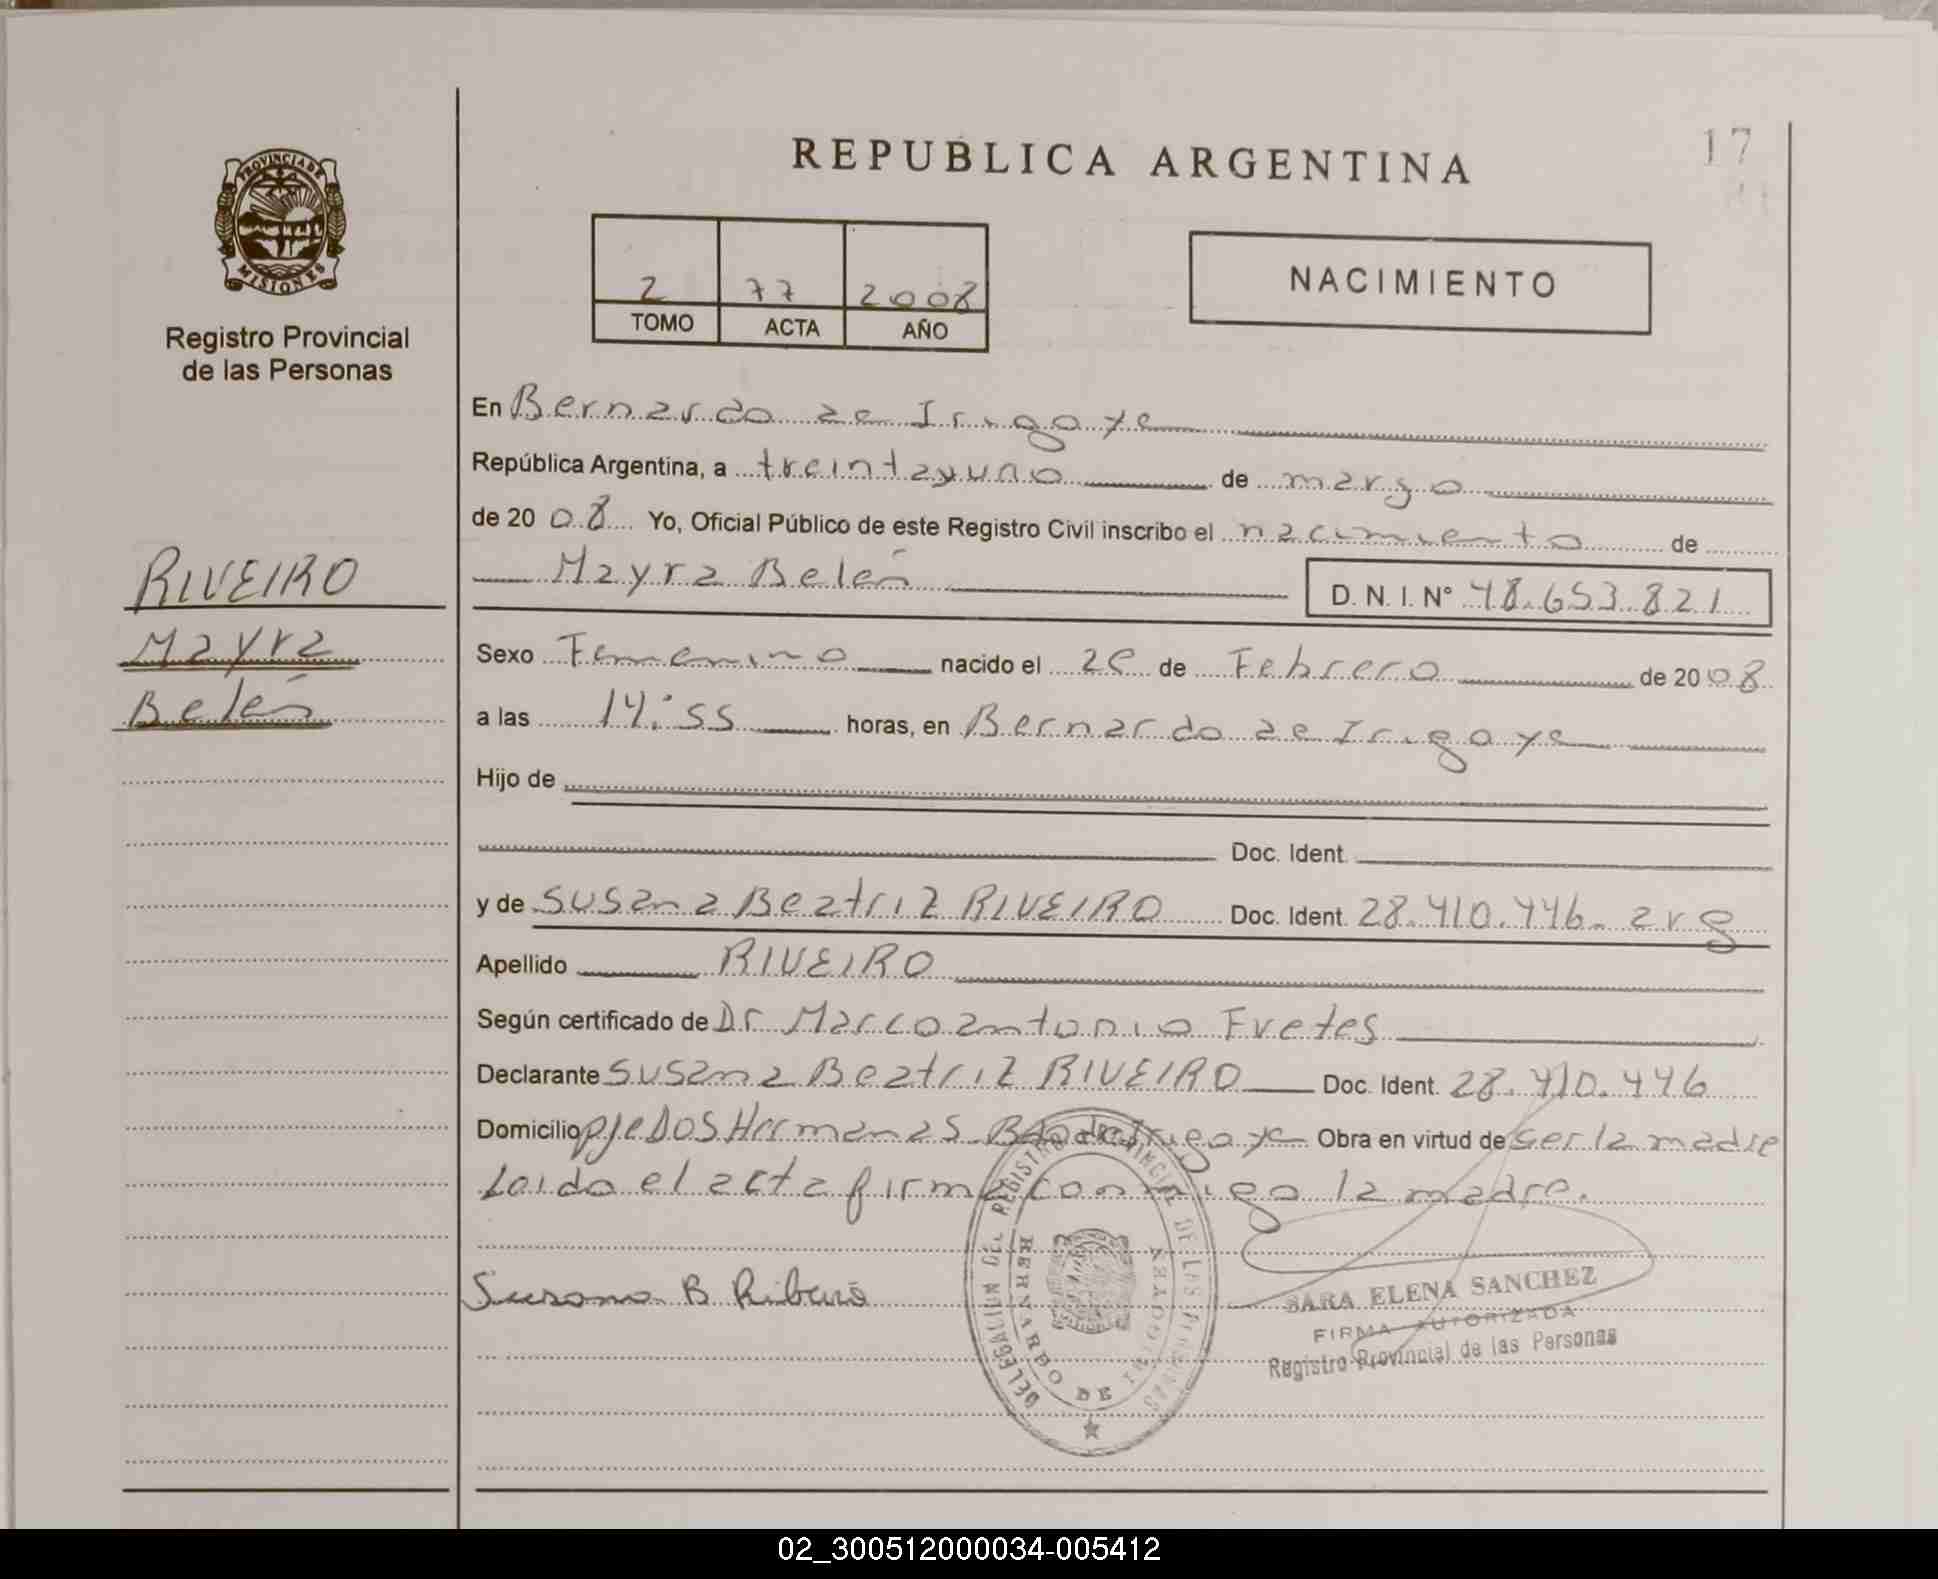 REPUBLICA ARGENTINA
17
PROVINCIA DE
MISIONES
Registro Provincial
de las Personas
2 77 2008
TOMO ACTA AÑO
NACIMIENTO
En Bernardo de Irigoye
República Argentina, a treintayuno de marzo
de 20 08 Yo, Oficial Público de este Registro Civil inscribo el nacimiento de
Mayra Belén D. N. I. N° 48.653.821
RIVEIRO
Mayra
Belén
Sexo Femenino nacido el de Febrero de 20 08
a las 14:55 horas, en Bernardo de Irigoye
Hijo de
Doc. Ident.
y de Susana Beatriz RIVEIRO Doc. Ident. 28.410.446. arg
Apellido RIVEIRO
Según certificado de Dr Marcoantonio Fretes
Declarante Susana Beatriz RIVEIRO Doc. Ident. 28.410.446
Domicilio pje Dos Hermanas Bdo de Irigoye Obra en virtud de ser la madre
Loido el acta firma conmigo la madre.
Susana B Ribeiro
DELEGACION DEL REGISTRO PROVINCIAL DE LAS PERSONAS
BERNARDO DE IRIGOYEN
SARA ELENA SANCHEZ
FIRMA AUTORIZADA
Registro Provincial de las Personas
02_300512000034-005412